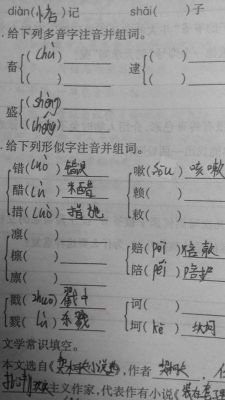 diàn(惦)记 shāi( )子
.给下列多音字注音并组词。
畜{(chù)
( )
逮{( )
( )
盛{(shèng)
(chéng)
.给下列形似字注音并组词。
错(cuò)错误
醋(cù)米醋
措(cuò)措施
嗽(sòu)咳嗽
赖( )
敕( )
凛( )
檩( )
廪( )
赔(péi)赔款
陪(péi)陪护
戳(chuō)戳中
戮(lù)杀戮
诃( )
坷(kě)坎坷
文学常识填空。
本文选自《 》,作者
主义作家,代表作有小说《